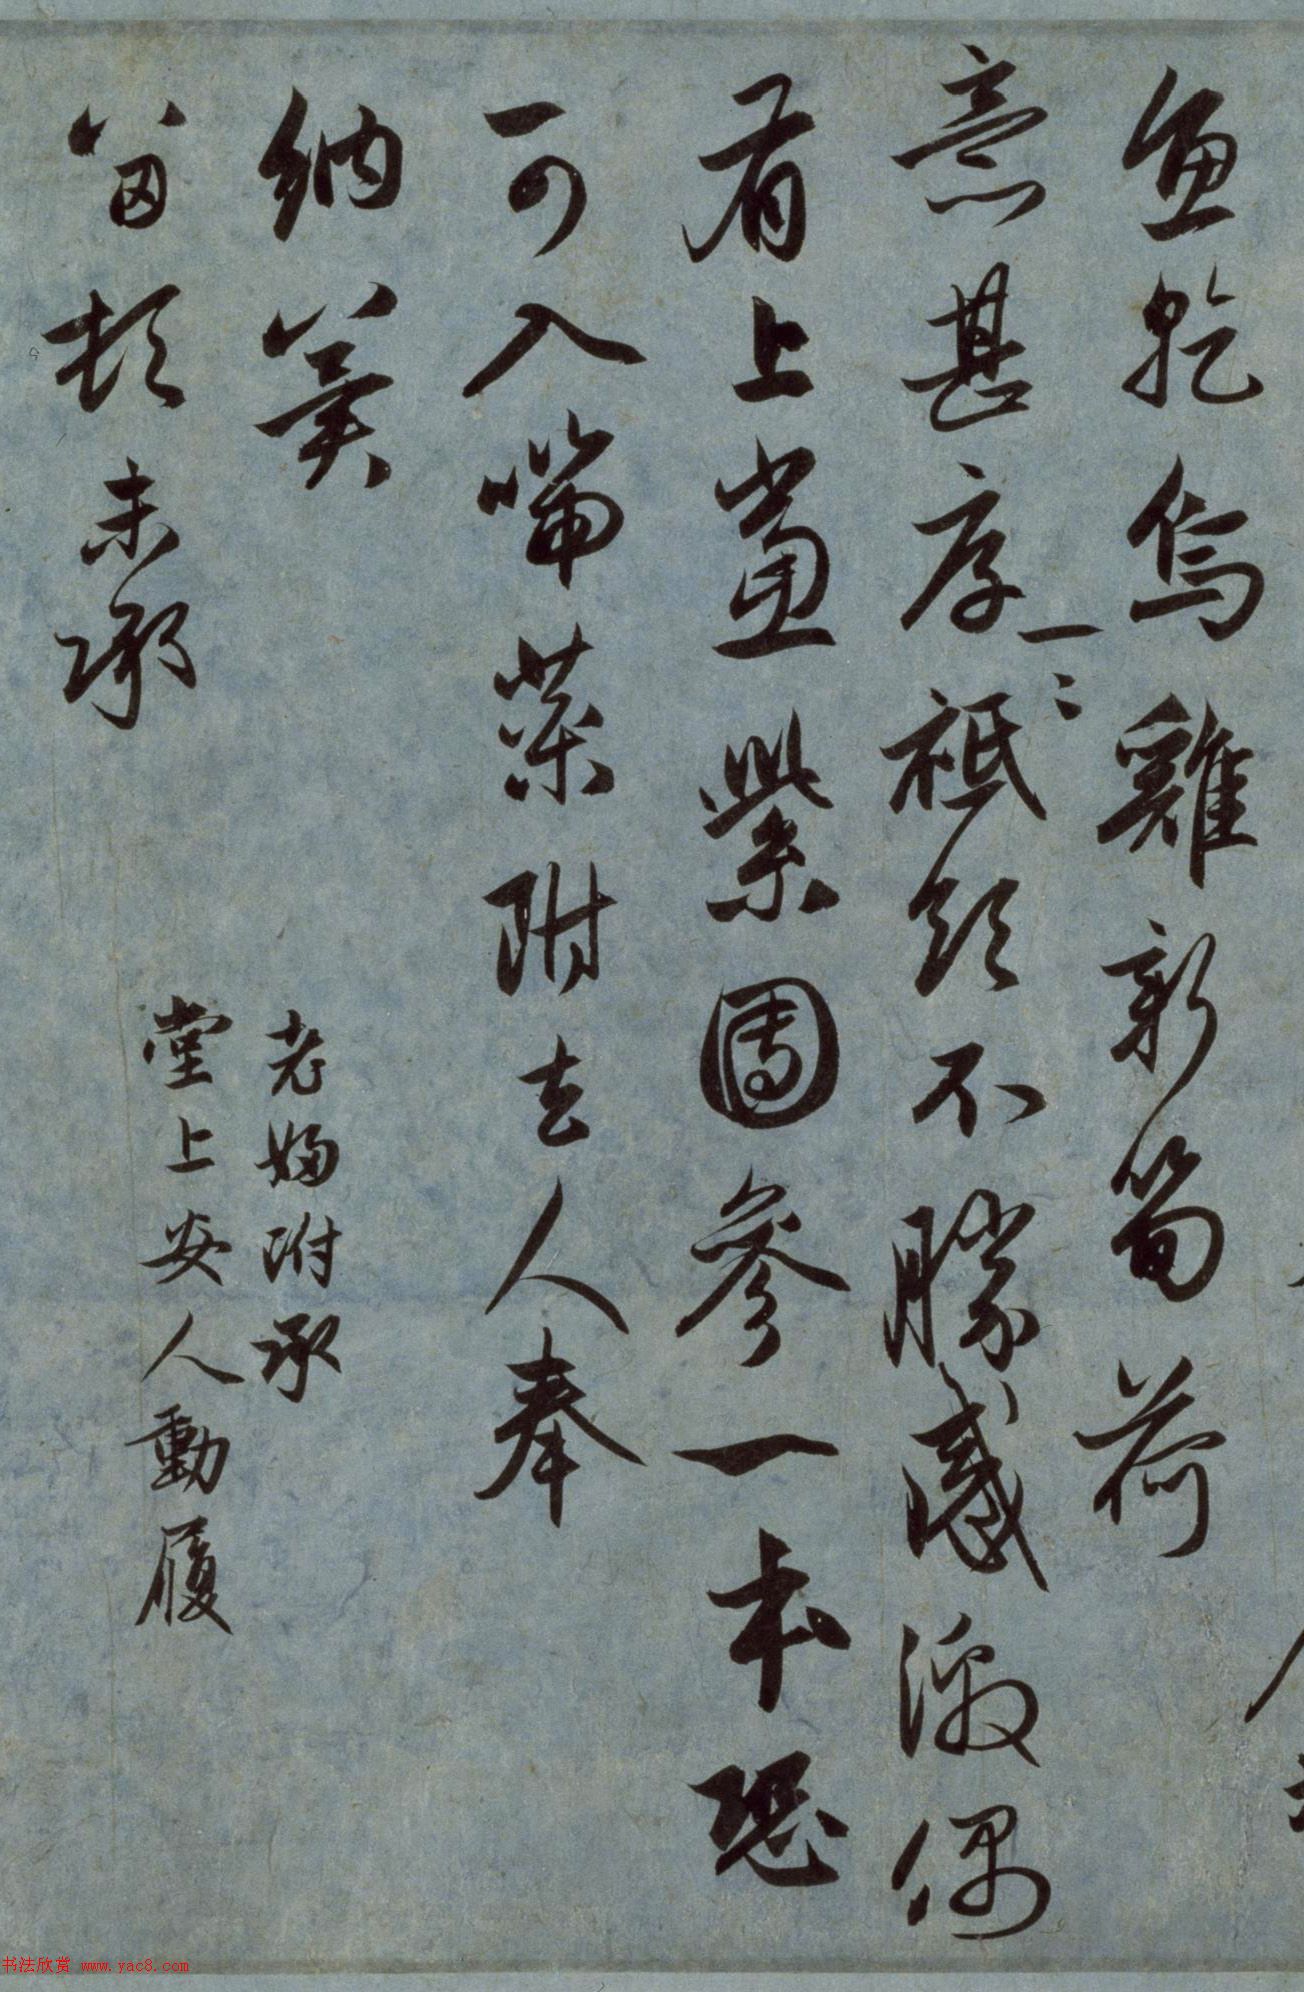 魚乾烏雞新筍荷
意甚厚一〻祗領不勝感激偶
有上黨紫團參一本恐
可入喘藥附去人奉
納冀
留頓未承
老婦附承
堂上安人動履
书法欣赏 www.yac8.com